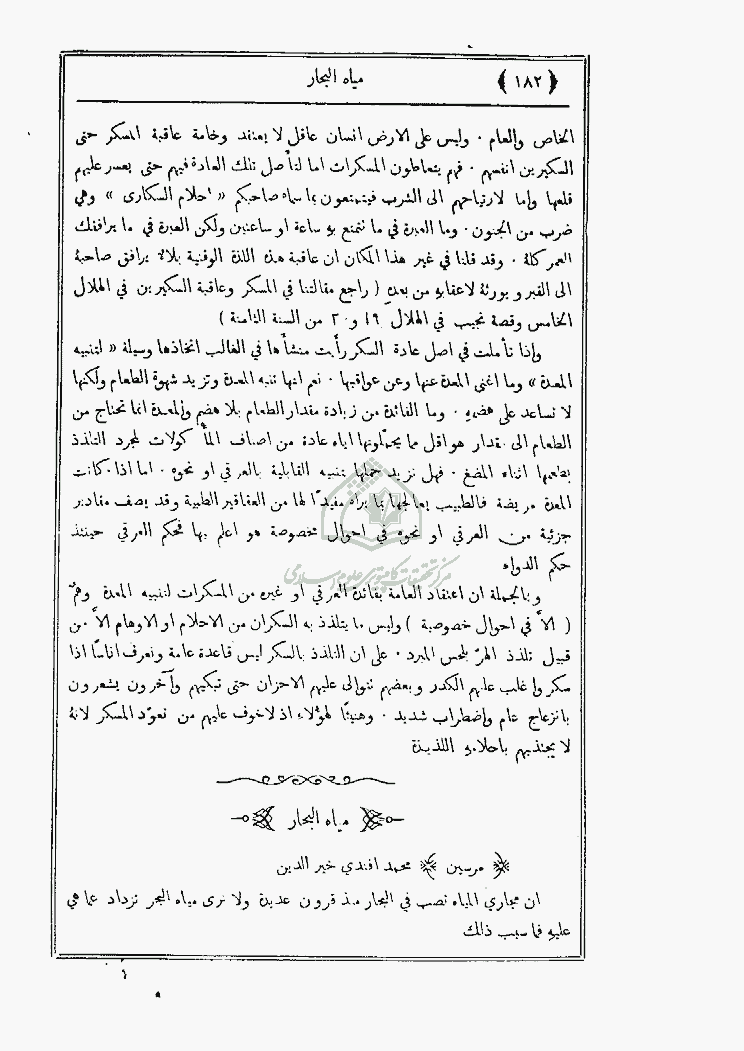 ﴿ ١٨٢ ﴾ مياه البحار
الخاص والعام ٠ وليس على الارض انسان عاقل لا يعتقد وخامة عاقبة المسكر حتى
السكيرين انفسهم ٠ فهم يتعاطون المسكرات اما لتأصل تلك العادة فيهم حتى يعسر عليهم
قلعها واما لارتياحهم الى الشرب فيتمتعون بما سماه صاحبكم « احلام السكارى » وهي
ضرب من الجنون ٠ وما العبرة في ما نتمتع به ساعة او ساعتين ولكن العبرة في ما يرافقك
العمر كلهُ ٠ وقد قلنا في غير هذا المكان ان عاقبة هذه اللذة الوقتية بلاء يرافق صاحبهُ
الى القبر ويورثهُ لاعقابهِ من بعدهِ ( راجع مقالتنا في المسكر وعاقبة السكيرين في الهلال
الخامس وقصة نجيب في الهلال ١٩ و ٢٠ من السنة الثامنة )
واذا تأملت في اصل عادة السكر رأيت منشأها في الغالب اتخاذها وسيلة « لتنبيه
المعدة » وما اغنى المعدة عنها وعن عواقبها ٠ نعم انها تنبه المعدة وتزيد شهوة الطعام ولكنها
لا تساعد على هضمهِ ٠ وما الفائدة من زيادة مقدار الطعام بلا هضم والمعدة انما تحتاج من
الطعام الى مقدار هو اقل مما يحملونها اياه عادة من اصناف المأكولات لمجرد التلذذ
بطعمها اثناء المضغ ٠ فهل نزيد حملها بتنبيه القابلية بالعرقي او نحوه ٠ اما اذا كانت
المعدة مريضة فالطبيب يعالجها بما يراه مفيدًا لها من العقاقير الطبية وقد يصف مقادير
جزئية من العرقي او نحوه في احوال مخصوصة هو اعلم بها فحكم العرقي حينئذ
حكم الدواء
وبالجملة ان اعتقاد العامة بفائدة العرقي او غيره من المسكرات لتنبيه المعدة وهمٌ
( الاَّ في احوال خصوصية ) وليس ما يتلذذ به السكران من الاحلام او الاوهام الاَّ من
قبيل تلذذ الهرّ بلحس المبرد ٠ على ان التلذذ بالسكر ليس قاعدة عامة ونعرف اناسًا اذا
سكروا غلب عليهم الكدر وبعضهم نتوالى عليهم الاحزان حتى تبكيهم وآخرون يشعرون
بانزعاج عام واضطراب شديد ٠ وهنيئًا لهؤلاء اذ لا خوف عليهم من تعوّد المسكر لانهُ
لا يجتذبهم باحلامهِ اللذيذة
مياه البحار
﴿ مرسين ﴾ محمد افندي خير الدين
ان مجاري المياه تصب في البحار منذ قرون عديدة ولا نرى مياه البحر تزداد عما هي
عليهِ فما سبب ذالك
مركز تحقيقات كامپيوترى علوم اسلامى